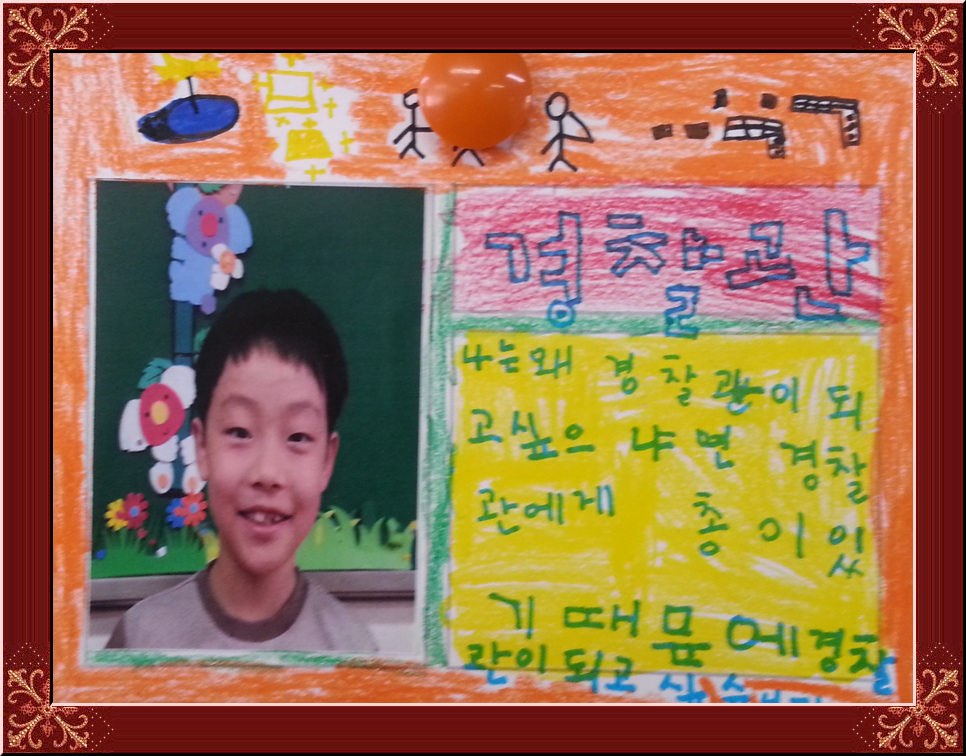 경찰관
나는왜 경찰관이 되
고싶으냐면 경찰
관에게 총이있
기때문에경찰
관이되고싶습니다